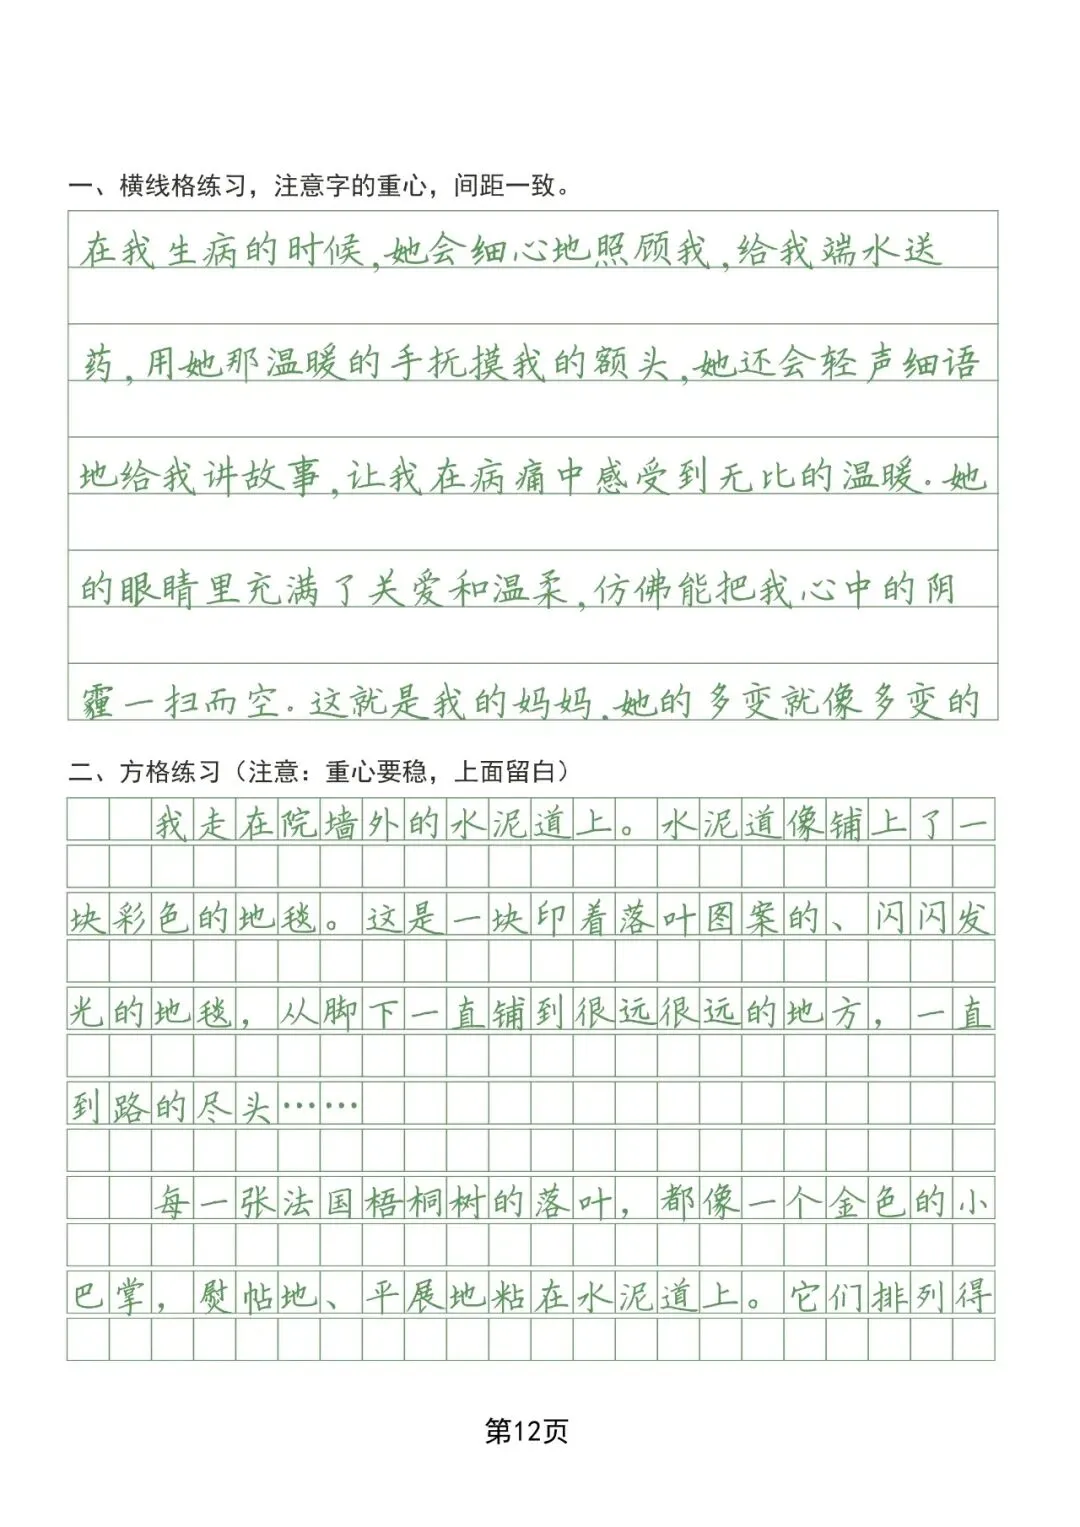 一、横线格练习，注意字的重心，间距一致。
在我生病的时候,她会细心地照顾我,给我端水送
药,用她那温暖的手抚摸我的额头,她还会轻声细语
地给我讲故事,让我在病痛中感受到无比的温暖.她
的眼睛里充满了关爱和温柔,仿佛能把我心中的阴
霾一扫而空.这就是我的妈妈.她的多变就像多变的
二、方格练习（注意：重心要稳，上面留白）
我走在院墙外的水泥道上。水泥道像铺上了一
块彩色的地毯。这是一块印着落叶图案的、闪闪发
光的地毯，从脚下一直铺到很远很远的地方，一直
到路的尽头……
每一张法国梧桐树的落叶，都像一个金色的小
巴掌，熨帖地、平展地粘在水泥道上。它们排列得
第12页